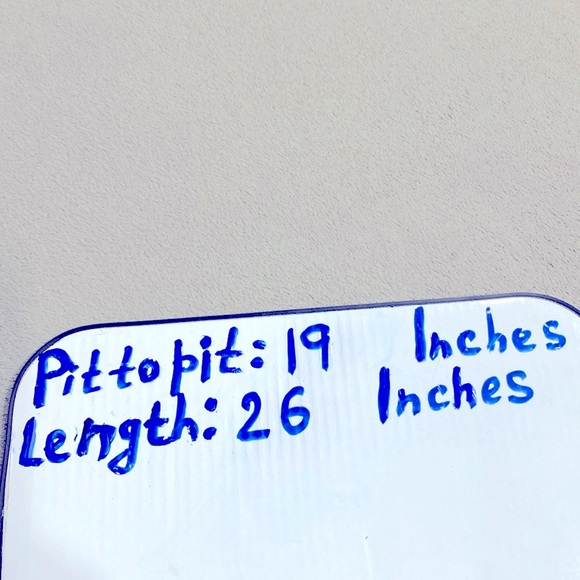 Pit to pit: 19 Inches
Length: 26 Inches